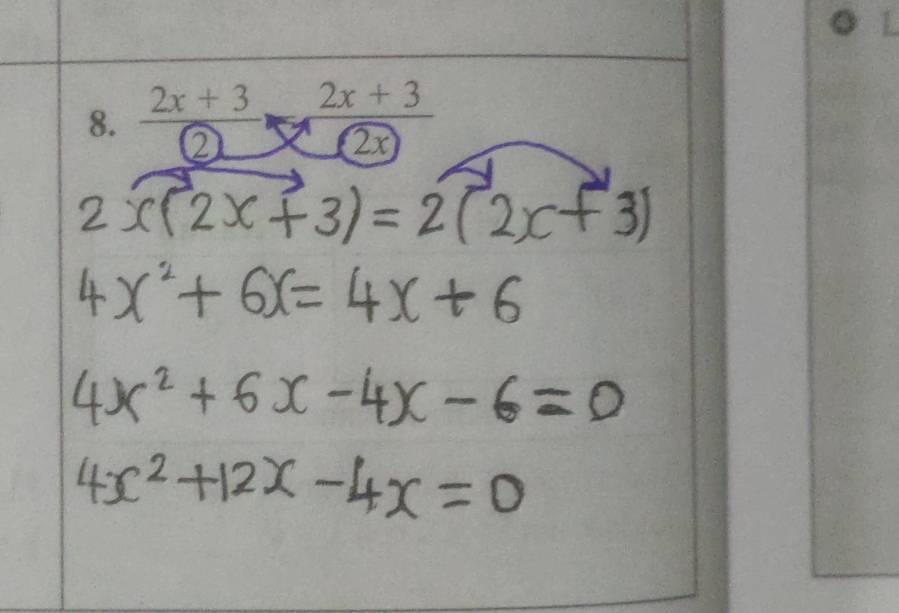 8. (2x + 3)/2 = (2x + 3)/2x
2x(2x+3)=2(2x+3)
4x²+6x=4x+6
4x²+6x-4x-6=0
4x²+12x-4x=0